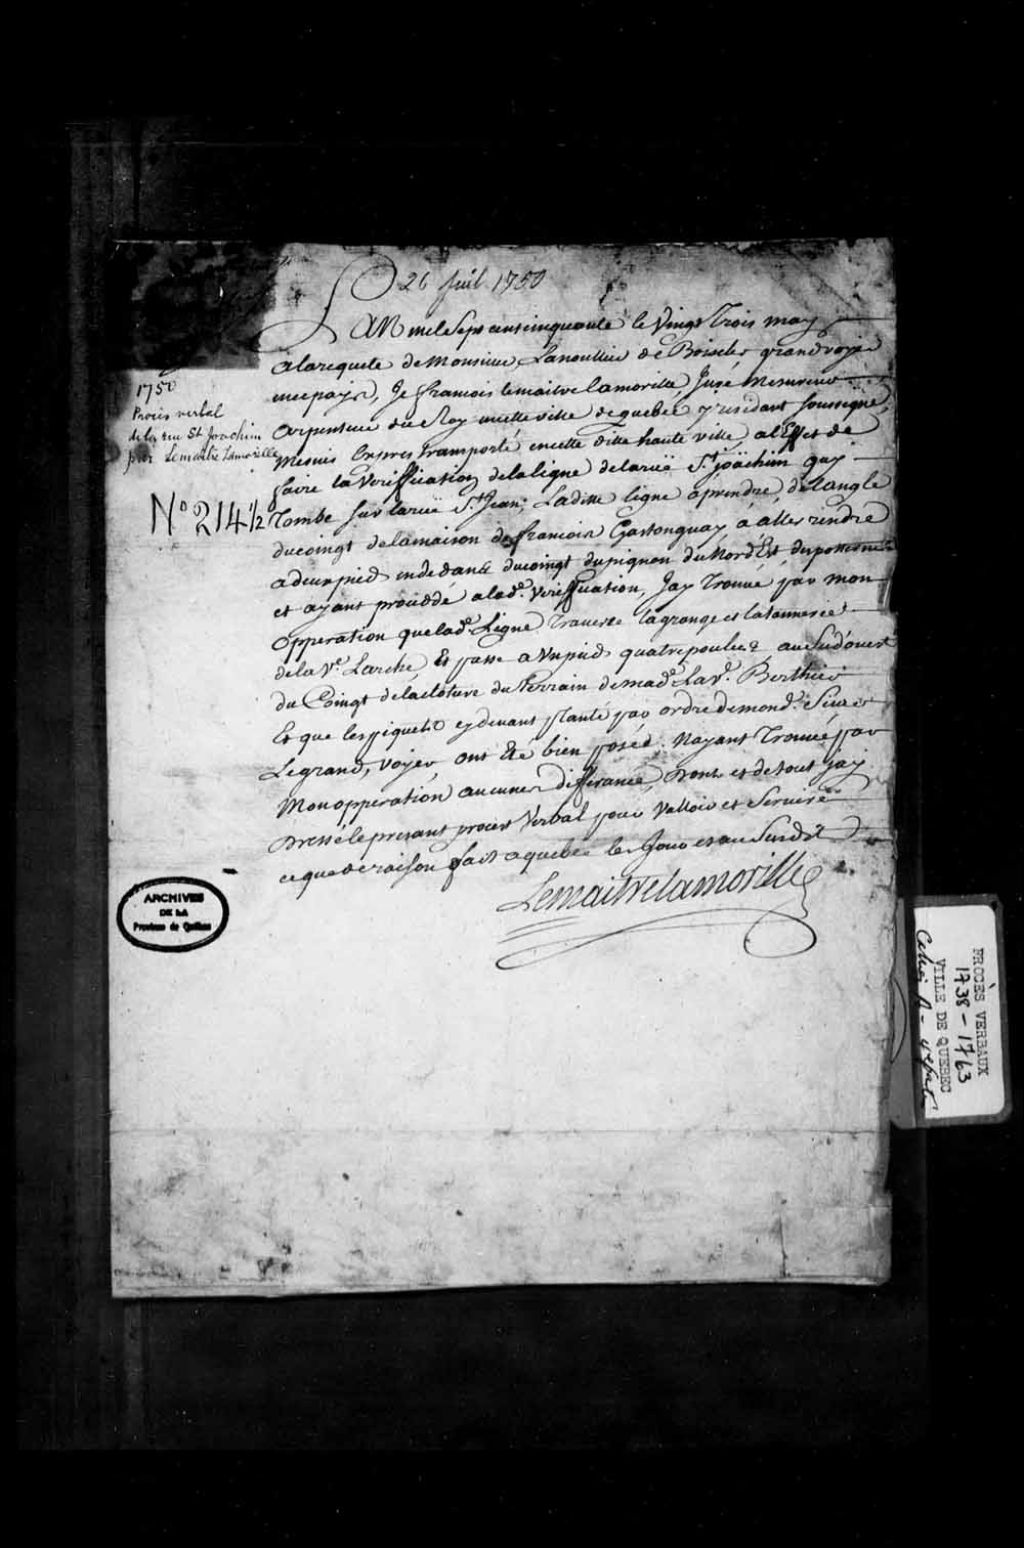 26 Juil. 1750
LAN mil sept cens cinquante le vingt trois may
alarequete de Monsieur Lanoullier de Boiscler grand voyer
encepaÿs, Je francois lemaitre lamorille Juré Mesureur
Arpenteur du Roy encette ville dequebec y residant soussigné,
Mesuis Expres transporté encette ditte haute ville, al'Effet de
faire la Veriffication delaligne delarüe St. joächim quy
Tombe sur larüe St. Jean; Laditte ligne aprendre, delangle
ducoingt delamaison de francois Gastonguay à aller rendre
adeux pied endedans ducoingt dupignon du Nord Est
et ayant proceddé alade. Veriffication, Jay Trouvé par mon
opperation quelade. Ligne Traverse lagrange et latannerie
dela Ve. Larche, Et passe a Un pied quatre poulces au Sud'ouest
du Coingt delacloture du terrain demade. la ve. Berthier
Et que les piquets cy devant planté par ordre demond. Sieur
Legrand, voyer, ont Eté bien posée. Nayant Trouvée par
Mon opperation aucunes differance, dont et detout jay
Dressé le present procest Verbal pour Valloir et Servire
ceque de raison fait aquebec les Jour et an Susdit
Lemaitre lamorille
1750
Procès verbal
de la rue St Joachim
par Lemaitre Lamorille
No 214 1/2
ARCHIVES
DE LA
Province de Québec
PROCÈS VERBAUX
1738 - 1763
VILLE DE QUEBEC